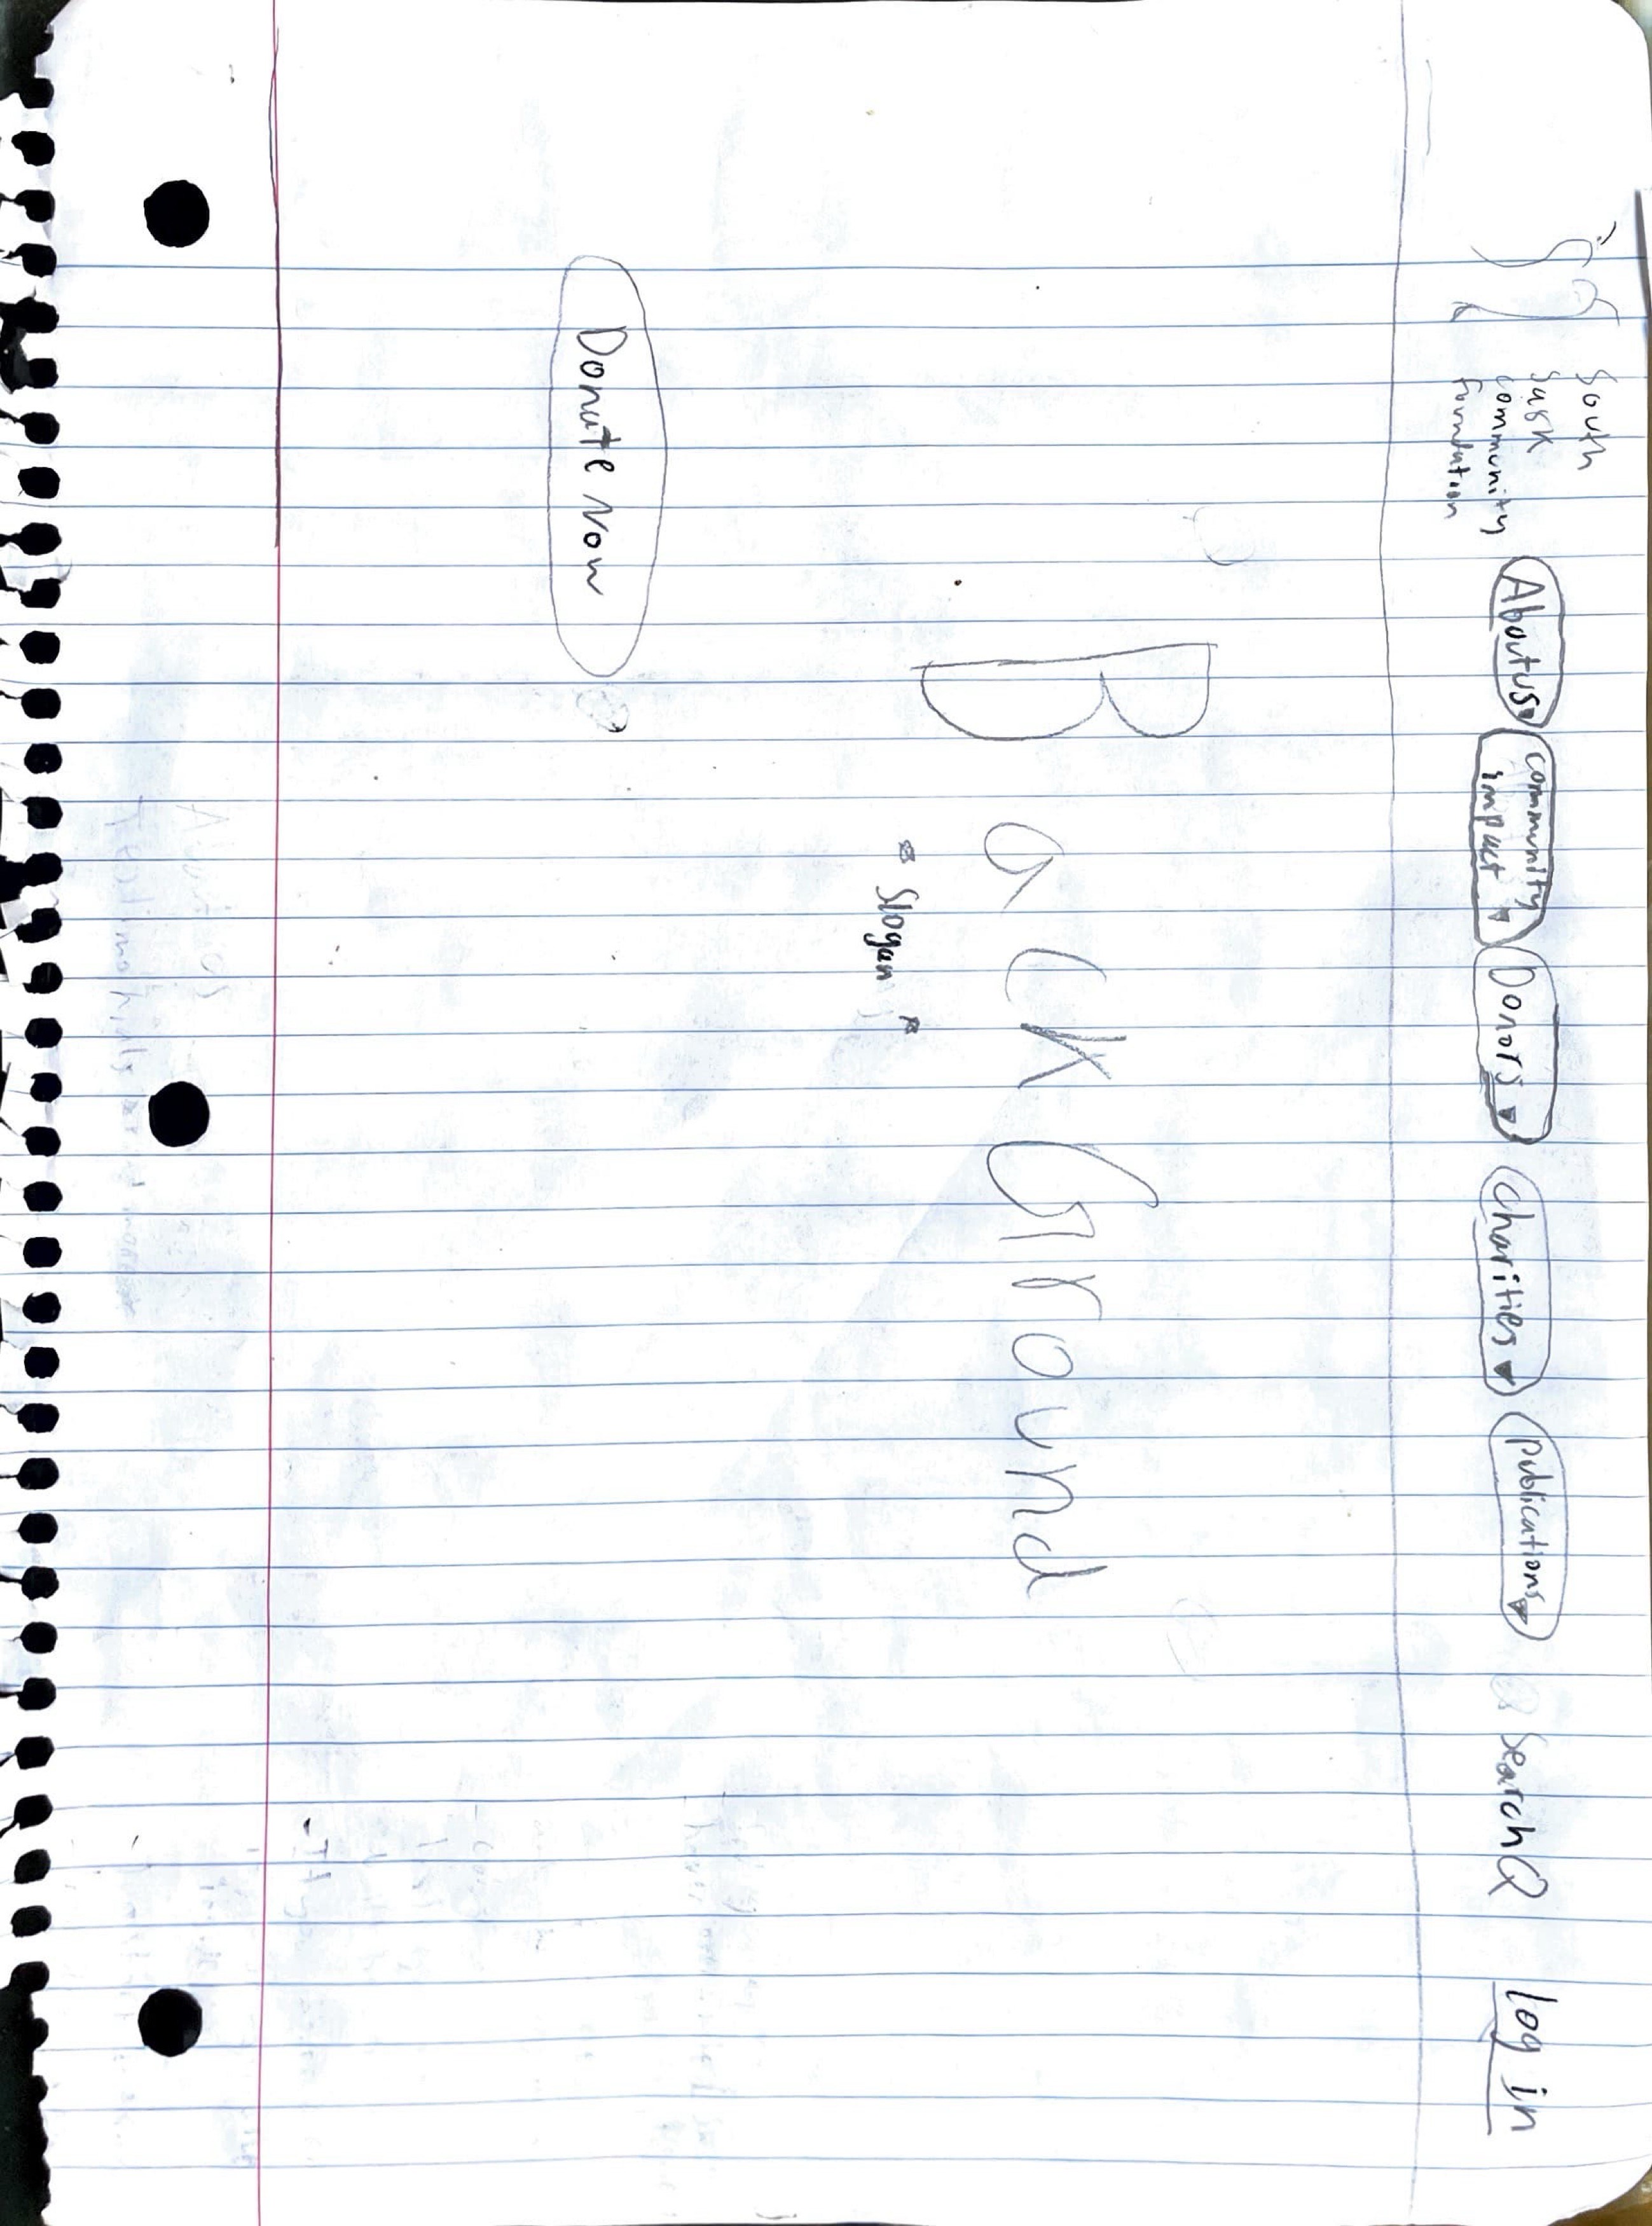 South
Sask
community
foundation
About us
community
impact
Donors
Charities
Publications
Search
log in
BackGround
* Slogan *
Donate Now